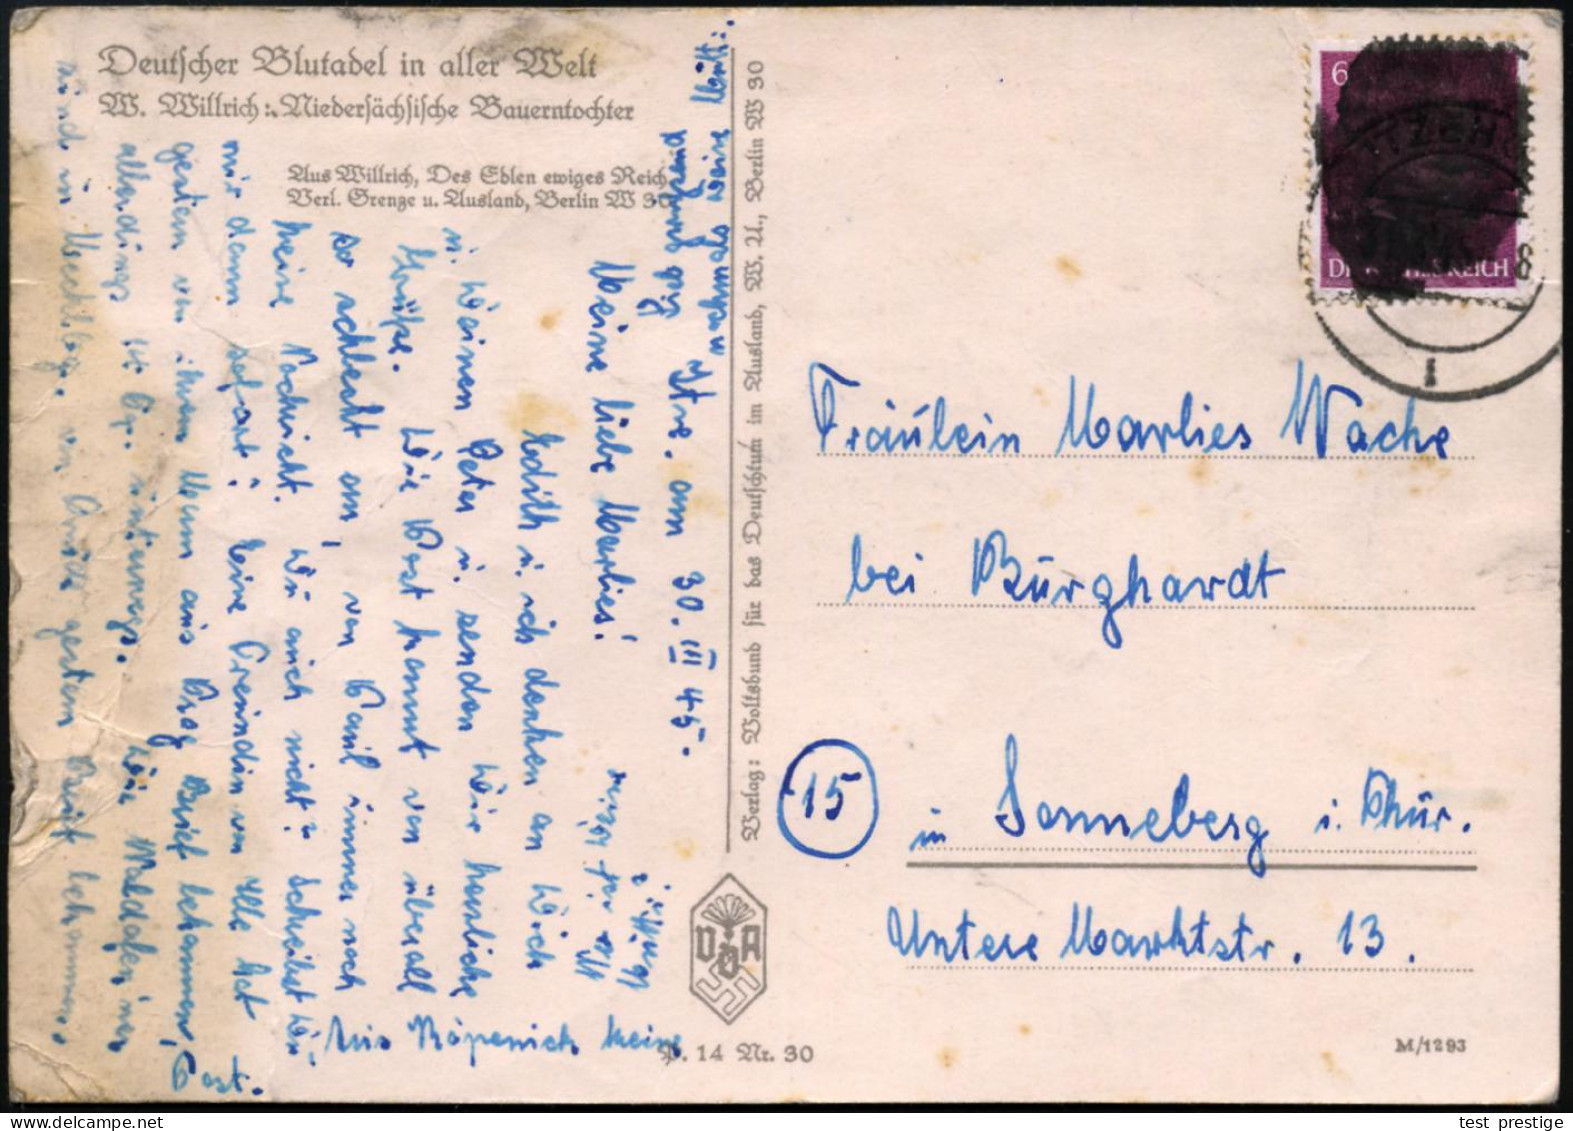 Deutscher Blutadel in aller Welt
W. Willrich: Niedersächsische Bauerntochter
Aus Willrich, Des Edlen ewiges Reich
Verl. Grenze u. Ausland, Berlin W 30
Verlag: Volksbund für das Deutschtum im Ausland, W. U., Berlin W 30
V D A
P. 14 Nr. 30
M/1293
6
ITZEHO
8
DEUTSCHES REICH
1
Fräulein Marlies Wache
bei Burghardt
15
in Sonneberg i. Thür.
Untere Marktstr. 13.
am 30. III 45.
Meine liebe Marlies!
Edith u. ich denken an Dich
u. Deinen Peter u. senden Dir herzliche
Grüße. Die Post kommt von überall
so schlecht an, von Paul immer noch
keine Nachricht. Du auch nicht? Schreibst Du
mir dann sofort? Deine Freundin von hat
gestern von ihrem Mann aus Prag Brief bekommen,
allerdings ist unterwegs.
sind in gestern Brief bekommen.
Aus Köpenick keine
Post.
nochmals